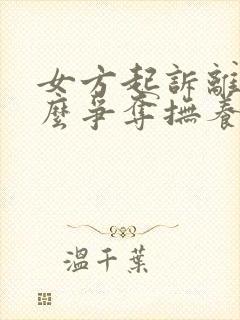 女方起訴離
麼爭奪撫養
溫千葉